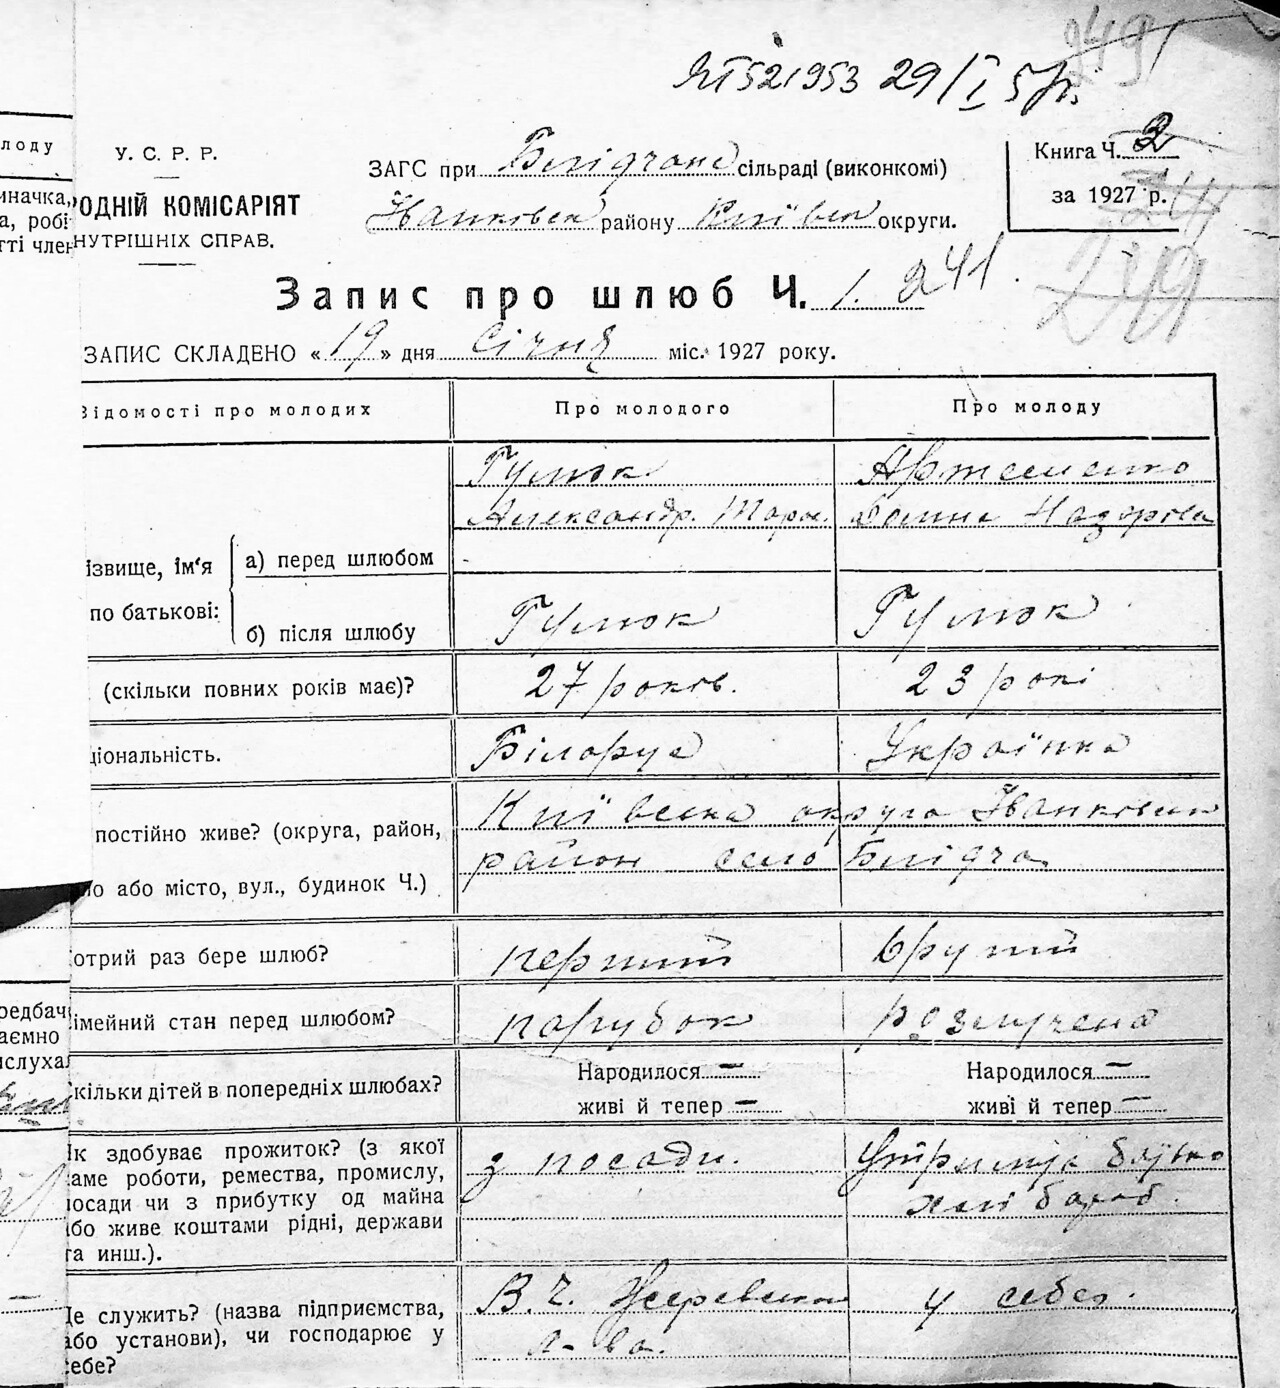 249
ЯТ521953 29/I 5
лоду
У. С. Р. Р.
ЗАГС при сільраді (виконкомі)
Книга Ч. 2
иначка,
РОДНІЙ КОМІСАРІЯТ
Іванківськ району Київськ округи.
за 1927 р.
241
а, робі
тті член
НУТРІШНІХ СПРАВ.
249
Запис про шлюб Ч. 1. 241
ЗАПИС СКЛАДЕНО « 19 » дня Січня міс. 1927 року.
Відомості про молодих Про молодого Про молоду
Гумок Артеменко
Александр. Тарас. Назарова
ізвище, ім'я
по батькові:
а) перед шлюбом
б) після шлюбу
Гумок Гумок
(скільки повних років має)? 27 років. 23 рокі
ціональність. Білорус Українка
Київська округа Іванківськ
постійно живе? (округа, район,
район село
ло або місто, вул., будинок Ч.)
отрий раз бере шлюб? перший другий
редбач
імейний стан перед шлюбом? парубок розлучена
аємно
ислуха
кільки дітей в попередніх шлюбах?
Народилося — Народилося —
живі й тепер — живі й тепер —
Як здобуває прожиток? (з якої
саме роботи, ремества, промислу,
посади чи з прибутку од майна
або живе коштами рідні, держави
та инш.).
з посади.
Де служить? (назва підприємства,
або установи), чи господарює у
себе?
В. Ч. у себе.
л-ва.